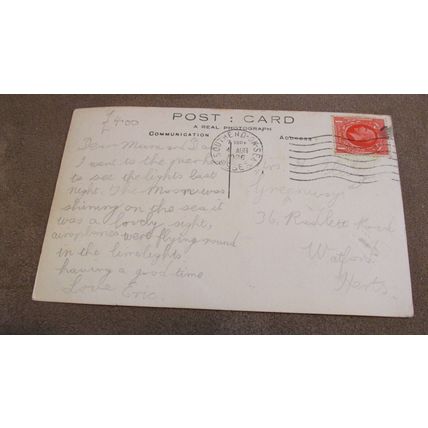 POST : CARD
A REAL PHOTOGRAPH
COMMUNICATION
ADDRESS
SOUTHEND-ON-SEA
1936
Dear Mum and Dad
I went to the
to see the lights last
night. The Moon was
shining on the sea it
was a lovely sight,
aeroplanes were flying round
in the limelights,
having a good time
Love Eric.
Greenway
36, Road
Watford
Herts.